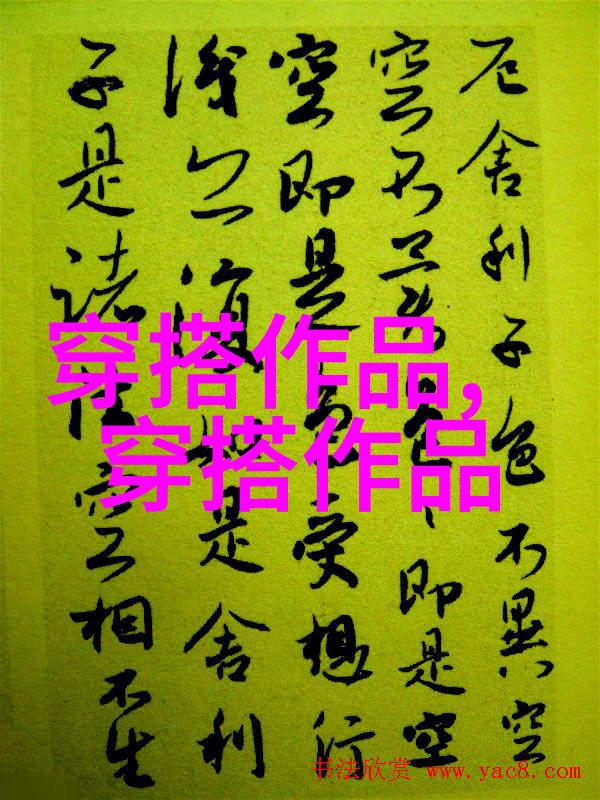 厄舍利子色不異空
空不異色々即是空
空即是色受想行
識亦復如是舍利
子是諸法空相不生
穿搭作品,
穿搭作品
书法欣赏 www.yac8.com